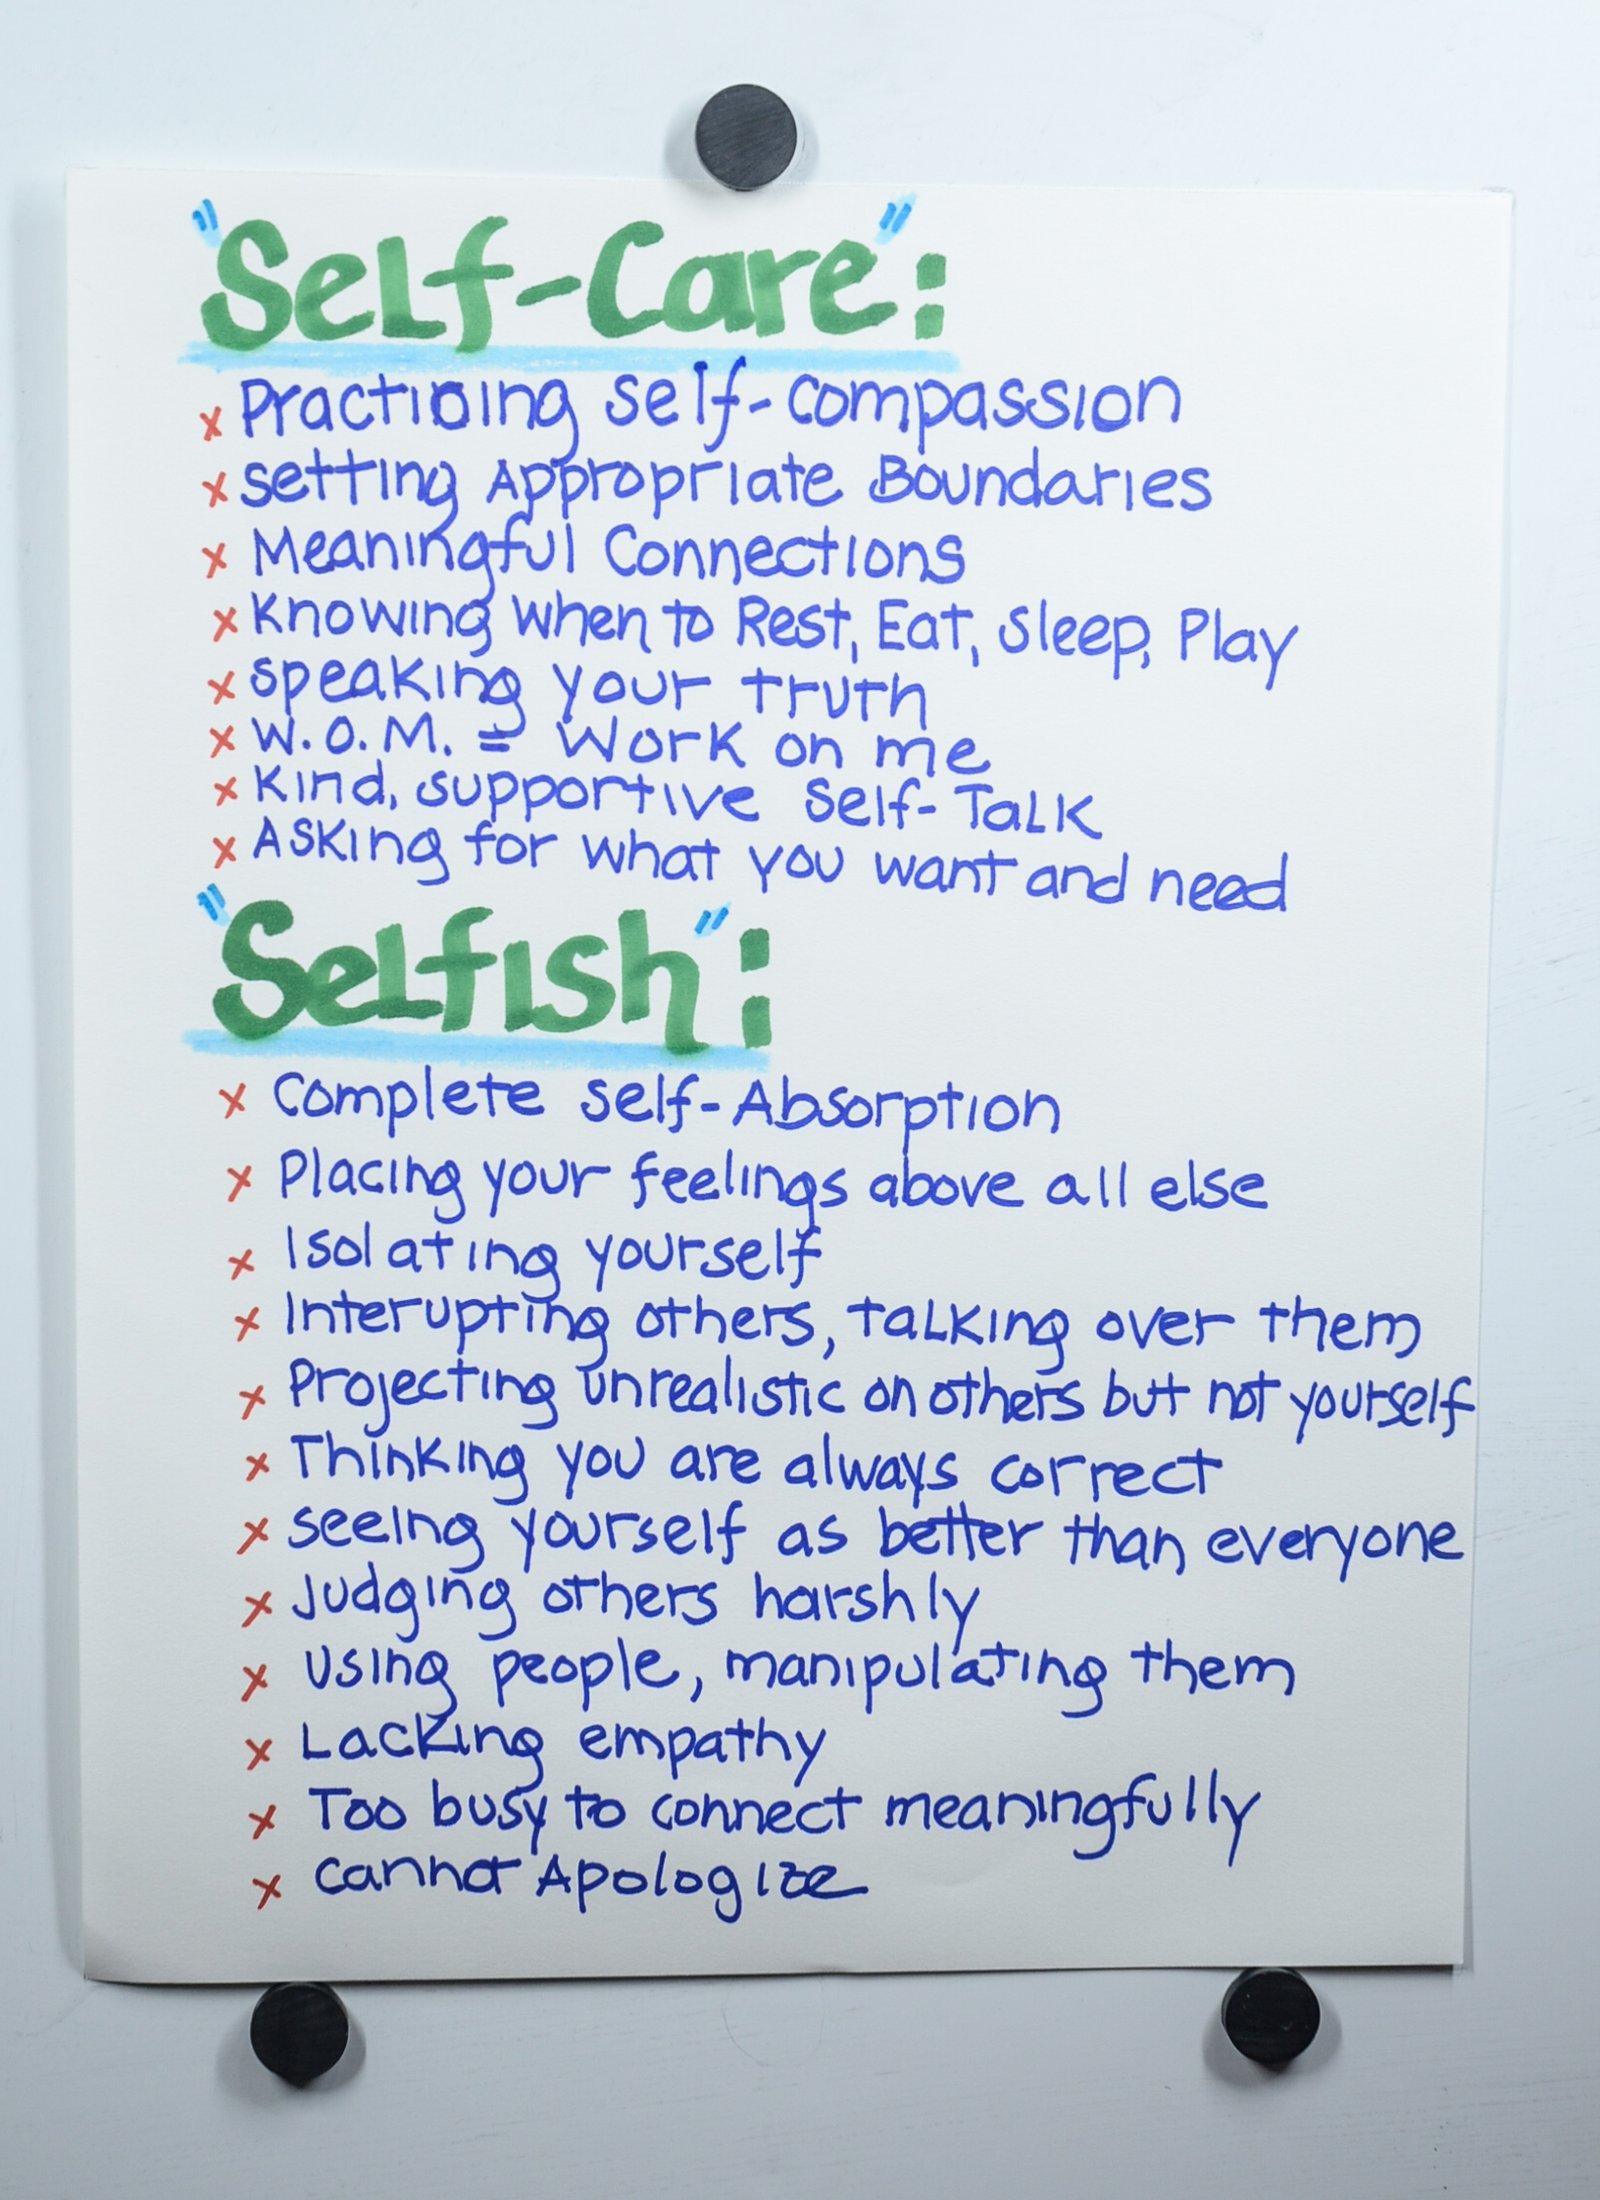 "Self-Care":
x Practicing self-compassion
x setting Appropriate Boundaries
x Meaningful Connections
x Knowing when to Rest, Eat, Sleep, Play
x speaking your truth
x W.O.M. = Work on me
x Kind, supportive Self-Talk
x Asking for what you want and need
"Selfish":
x Complete self-Absorption
x Placing your feelings above all else
x Isolating yourself
x Interupting others, talking over them
x Projecting unrealistic on others but not yourself
x Thinking you are always correct
x seeing yourself as better than everyone
x Judging others harshly
x Using people, manipulating them
x Lacking empathy
x Too busy to connect meaningfully
x cannot Apologize